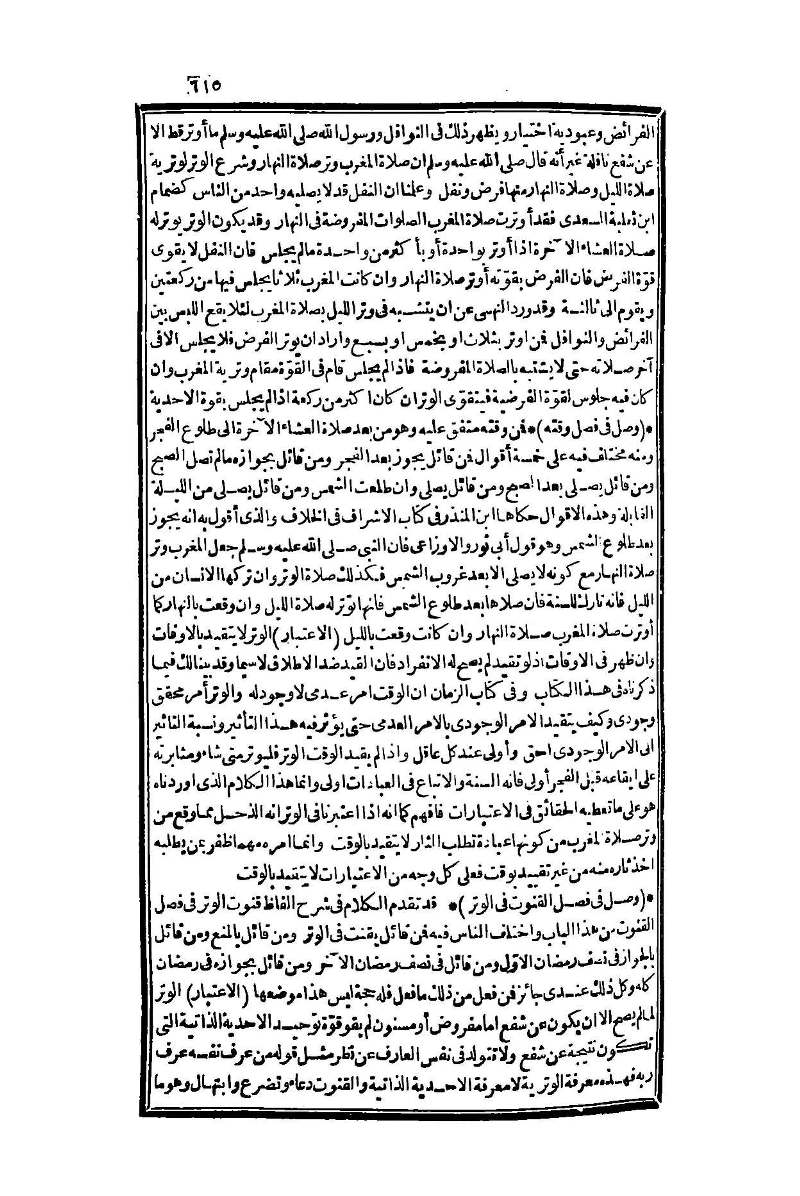 ٦١٥
الفرائض وعبودية اختيار ويظهر ذلك فى النوافل ورسول الله صلى الله عليه وسلم ما أوتر قط الا
عن شفع نافلة غير أنه قال صلى الله عليه وسلم ان صلاة المغرب وتر صلاة النهار وشرع الوتر لوترية
صلاة الليل وصلاة النهار منها فرض ونفل وعلمنا ان النفل قد لا يصليه واحد من الناس كضمام
ابن ثعلبة السعدى فقد أوترت صلاة المغرب الصلوات المفروضة فى النهار وقد يكون الوتر يوتر له
صلاة العشاء الآخرة اذا أوتر بواحدة أو بأكثر من واحدة مالم يجلس فان النفل لا يقوى
قوة الفرض فان الفرض بقوته أوتر صلاة النهار وان كانت المغرب ثلاثا يجلس فيها من ركعتين
ويقوم الى ثالثة وقد ورد النهى عن ان يتشبه فى وتر الليل بصلاة المغرب لئلا يقع اللبس بين
الفرائض والنوافل فمن اوتر بثلاث او بخمس او بسبع واراد ان يوتر الفرض فلا يجلس الا فى
آخر صلاته حتى لا يشتبه بالصلاة المفروضة فاذا لم يجلس قام فى القوة مقام وترية المغرب وان
كان فيه جلوس لقوة الفرضية فيتقوى الوتر ان كان اكثر من ركعة اذا لم يجلس بقوة الاحدية
*(وصل فى فصل وقته)* فمن وقته متفق عليه وهو من بعد صلاة العشاء الآخرة الى طلوع الفجر
ومنه مختلف فيه على خمسة أقوال فمن قائل يجوز بعد الفجر ومن قائل بجوازه مالم تصل الصبح
ومن قائل يصلى بعد الصبح ومن قائل يصلى وان طلعت الشمس ومن قائل يصلى من الليلة
القابلة وهذه الاقوال حكاها ابن المنذر فى كتاب الاشراف فى الخلاف والذى أقول به انه يجوز
بعد طلوع الشمس وهو قول أبى ثور والاوزاعى فان النبى صلى الله عليه وسلم جعل المغرب وتر
صلاة النهار مع كونه لا يصلى الا بعد غروب الشمس فكذلك صلاة الوتر وان تركها الانسان من
الليل فانه تارك للسنة فان صلاها بعد طلوع الشمس فانها توتر له صلاة الليل وان وقعت بالنهار كما
أوترت صلاة المغرب صلاة النهار وان كانت وقعت بالليل (الاعتبار) الوتر لا يتقيد بالاوقات
وان ظهر فى الاوقات اذ لو تقيد لم يصح له الانفراد فان القيد ضد الاطلاق لاسيما وقد بينا لك فيما
ذكرناه فى هذا الكتاب وفى كتاب الزمان ان الوقت امر عدمى لا وجود له والوتر أمر محقق
وجودى وكيف يتقيد الامر الوجودى بالامر العدمى حتى يؤثر فيه هذا التأثير ونسبة التاثير
الى الامر الوجودى احق وأولى عند كل عاقل واذا لم يقيد الوقت الوتر فليوتر متى شاء ومثابرته
على ايقاعه قبل الفجر أولى فانه السنة والاتباع فى العبادات اولى وانما هذا الكلام الذى اوردناه
هو على ما تعطيه الحقائق فى الاعتبارات فافهم كما انه اذا اعتبرنا فى الوتر انه الذحل مما وقع من
وتر صلاة المغرب من كونها عبادة تطلب الثار لا يتقيد بالوقت وانما امره مهما ظفر بمن يطلبه
اخذ ثاره منه من غير تقييد بوقت فعلى كل وجه من الاعتبارات لا يتقيد بالوقت
*(وصل فى فصل القنوت فى الوتر)* قد تقدم الكلام فى شرح الفاظ قنوت الوتر فى فصل
القنوت من هذا الباب واختلف الناس فيه فمن قائل يقنت فى الوتر ومن قائل بالمنع ومن قائل
بالجواز فى نصف رمضان الاول ومن قائل فى نصف رمضان الآخر ومن قائل بجوازه فى رمضان
كله وكل ذلك عندى جائز فمن فعل من ذلك ما فعل فله حجة ليس هذا موضعها (الاعتبار) الوتر
لما لم يصح الا ان يكون عن شفع اما مفروض أو مسنون لم يقو قوة توحيد الاحدية الذاتية التى
لا تكون نتيجة عن شفع ولا تتولد فى نفس العارف عن نظر مثل قوله من عرف نفسه عرف
ربه فهذه معرفة الوترية لا معرفة الاحدية الذاتية والقنوت دعاء وتضرع وابتهال وهو ما